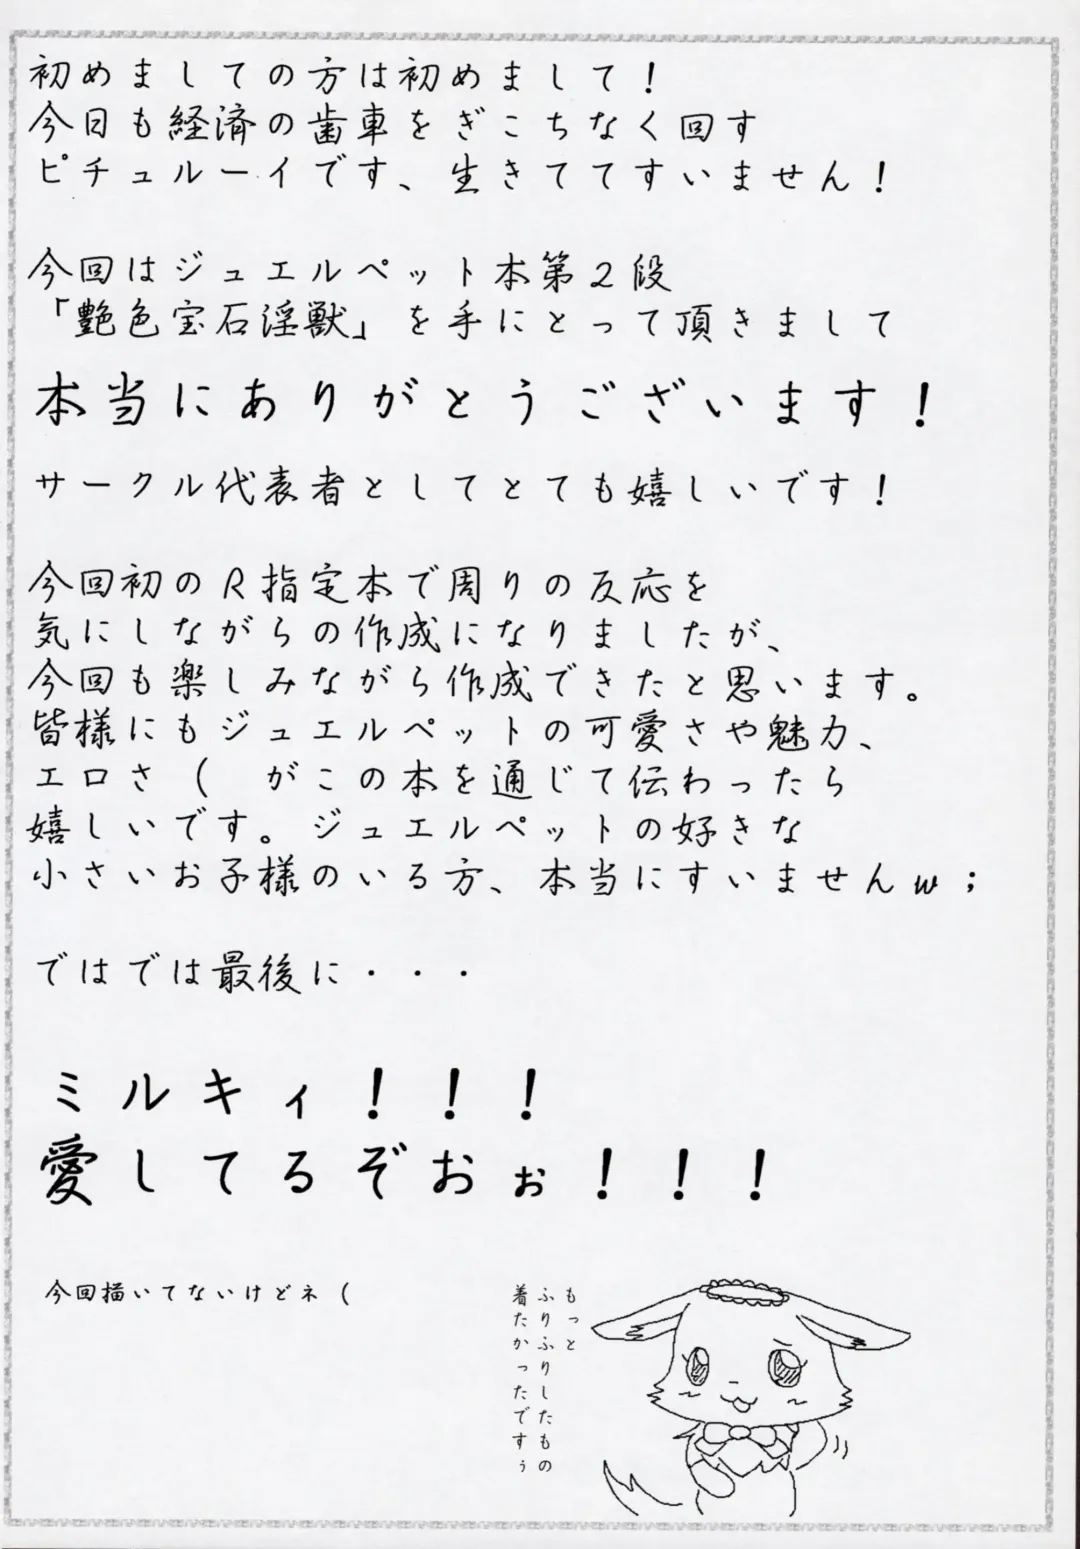 初めましての方は初めまして！
今日も経済の歯車をぎこちなく回す
ピチュルーイです、生きててすいません！
今回はジュエルペット本第２段
「艶色宝石淫獣」を手にとって頂きまして
本当にありがとうございます！
サークル代表者としてとても嬉しいです！
今回初のＲ指定本で周りの反応を
気にしながらの作成になりましたが、
今回も楽しみながら作成できたと思います。
皆様にもジュエルペットの可愛さや魅力、
エロさ（　がこの本を通じて伝わったら
嬉しいです。ジュエルペットの好きな
小さいお子様のいる方、本当にすいませんｗ；
ではでは最後に・・・
ミルキィ！！！
愛してるぞおぉ！！！
今回描いてないけどネ（
もっと
ふりふりしたもの
着たかったですぅ